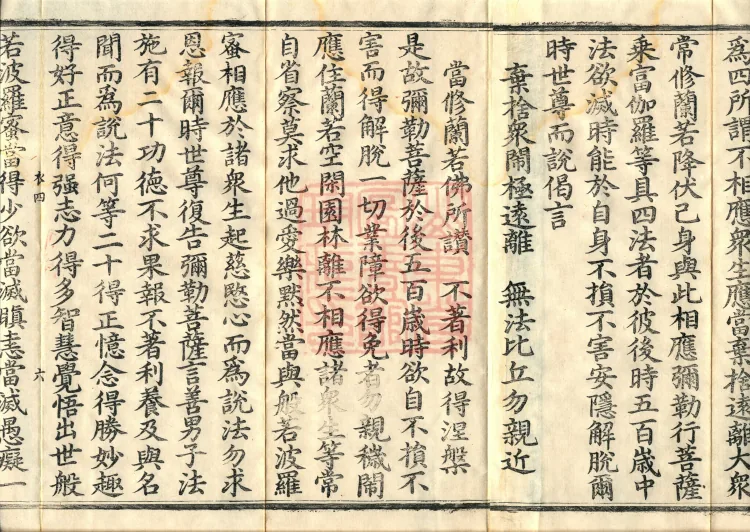 為四所謂不相應衆生應當棄捨遠離大衆
常修蘭若降伏己身與此相應彌勒行菩薩
乘富伽羅等具四法者於彼後時五百歲中
法欲滅時能於自身不損不害安隱解脫爾
時世尊而說偈言
棄捨衆閙極遠離　無法比丘勿親近
當修蘭若佛所讚　不著利故得涅槃
是故彌勒菩薩於後五百歲時欲自不損不
害而得解脫一切業障欲得免者勿親穢閙
應住蘭若空閑園林離不相應諸衆生等常
自省察莫求他過愛樂默然當與般若波羅
蜜相應於諸衆生起慈愍心而為說法勿求
恩報爾時世尊復告彌勒菩薩言善男子法
施有二十功德不求果報不著利養及與名
聞而為說法何等二十得正憶念得勝妙趣
得好正意得强志力得多智慧覺悟出世般
衣四　六
若波羅蜜當得少欲當滅瞋恚當滅愚癡一